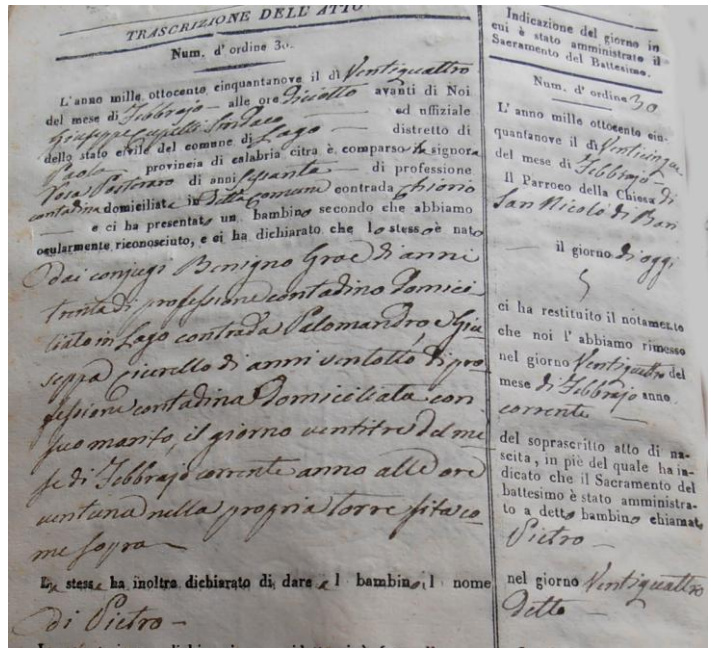 TRASCRIZIONE DELL'ATTO
Num. d'ordine 30.
L'anno mille ottocento cinquantanove il dì Ventiquattro
del mese di Febbrajo alle ore diciotto avanti di Noi
Giuseppe Cupelli Sindaco ed uffiziale
dello stato civile del comune di Lago distretto di
Paola provincia di calabria citra è comparsa la signora
Rosa Posteraro di anni sessanta di professione
contadina domiciliata in detto comune contrada
e ci ha presentato un bambino secondo che abbiamo
ocularmente riconosciuto, e ci ha dichiarato che lo stesso è nato
dai conjugi Benigno Groe di anni
trenta di professione contadino domici-
liato in Lago contrada Palomandro e Giu
seppa Cicerello di anni ventotto, di pro
fessione contadina domiciliata con
suo marito, il giorno ventitre del me
se di Febbrajo corrente anno alle ore
ventuna nella propria torre sita co
me sopra
La stessa ha inoltre dichiarato di dare al bambino il nome
di Pietro
Indicazione del giorno in
cui è stato amministrato il
Sacramento del Battesimo.
Num. d' ordine 30
L' anno mille ottocento cin-
quantanove il dì Venticinque
del mese di Febbrajo di
Il Parroco della Chiesa
San Nicolò di Bari
il giorno di oggi
ci ha restituito il notamento
che noi l' abbiamo rimesso
nel giorno Ventiquattro del
mese di Febbrajo anno
corrente
del soprascritto atto di na-
scita, in piè del quale ha in-
dicato che il Sacramento del
battesimo è stato amministra-
to a detto bambino chiamato
Pietro
nel giorno Ventiquattro
detto